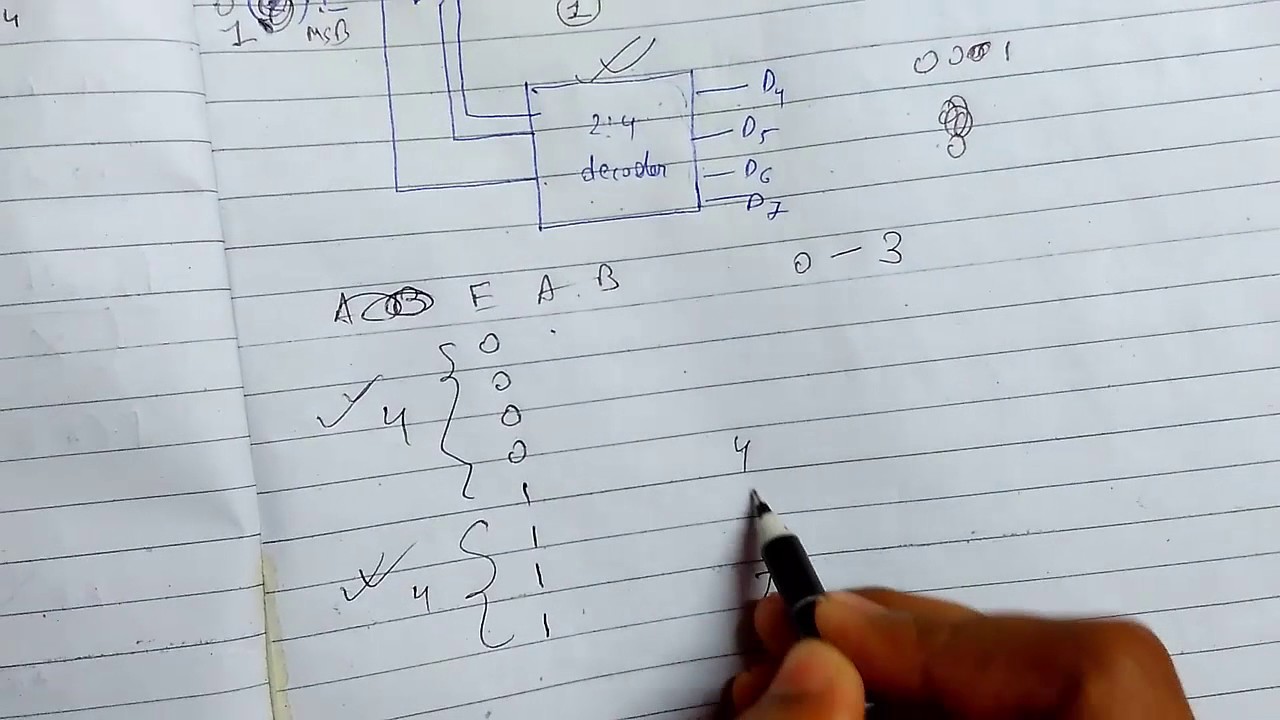 4
1 MSB
1
D4
2:4
D5
decoder
D6
D7
0001
0
0 - 3
A B E A . B
0
0
4 0
0
1
4
1
1
4
1
7